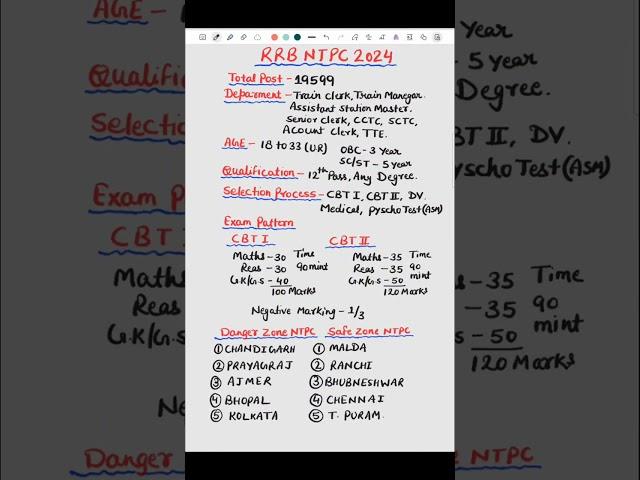 RRB NTPC 2024
Total Post - 19599
Deparment - Train Clerk, Train Manegar.
Assistant Station Master.
Senior Clerk, CCTC, SCTC,
Acount Clerk, TTE.
AGE - 18 to 33 (UR) OBC - 3 Year
SC/ST - 5 year
Qualification - 12th Pass, Any Degree.
Selection Process - CBT I, CBT II, DV.
Medical, PyschoTest (ASM)
Exam Pattern
CBT I CBT II
Maths - 30 Time Maths - 35 Time
Reas - 30 90mint Reas - 35 90
G.K/G.S - 40 G.K/G.S - 50 mint
100 Marks 120 Marks
Negative Marking - 1/3
Danger Zone NTPC Safe Zone NTPC
① CHANDIGARH ① MALDA
② PRAYAGRAJ ② RANCHI
③ AJMER ③ BHUBNESHWAR
④ BHOPAL ④ CHENNAI
⑤ KOLKATA ⑤ T. PURAM.